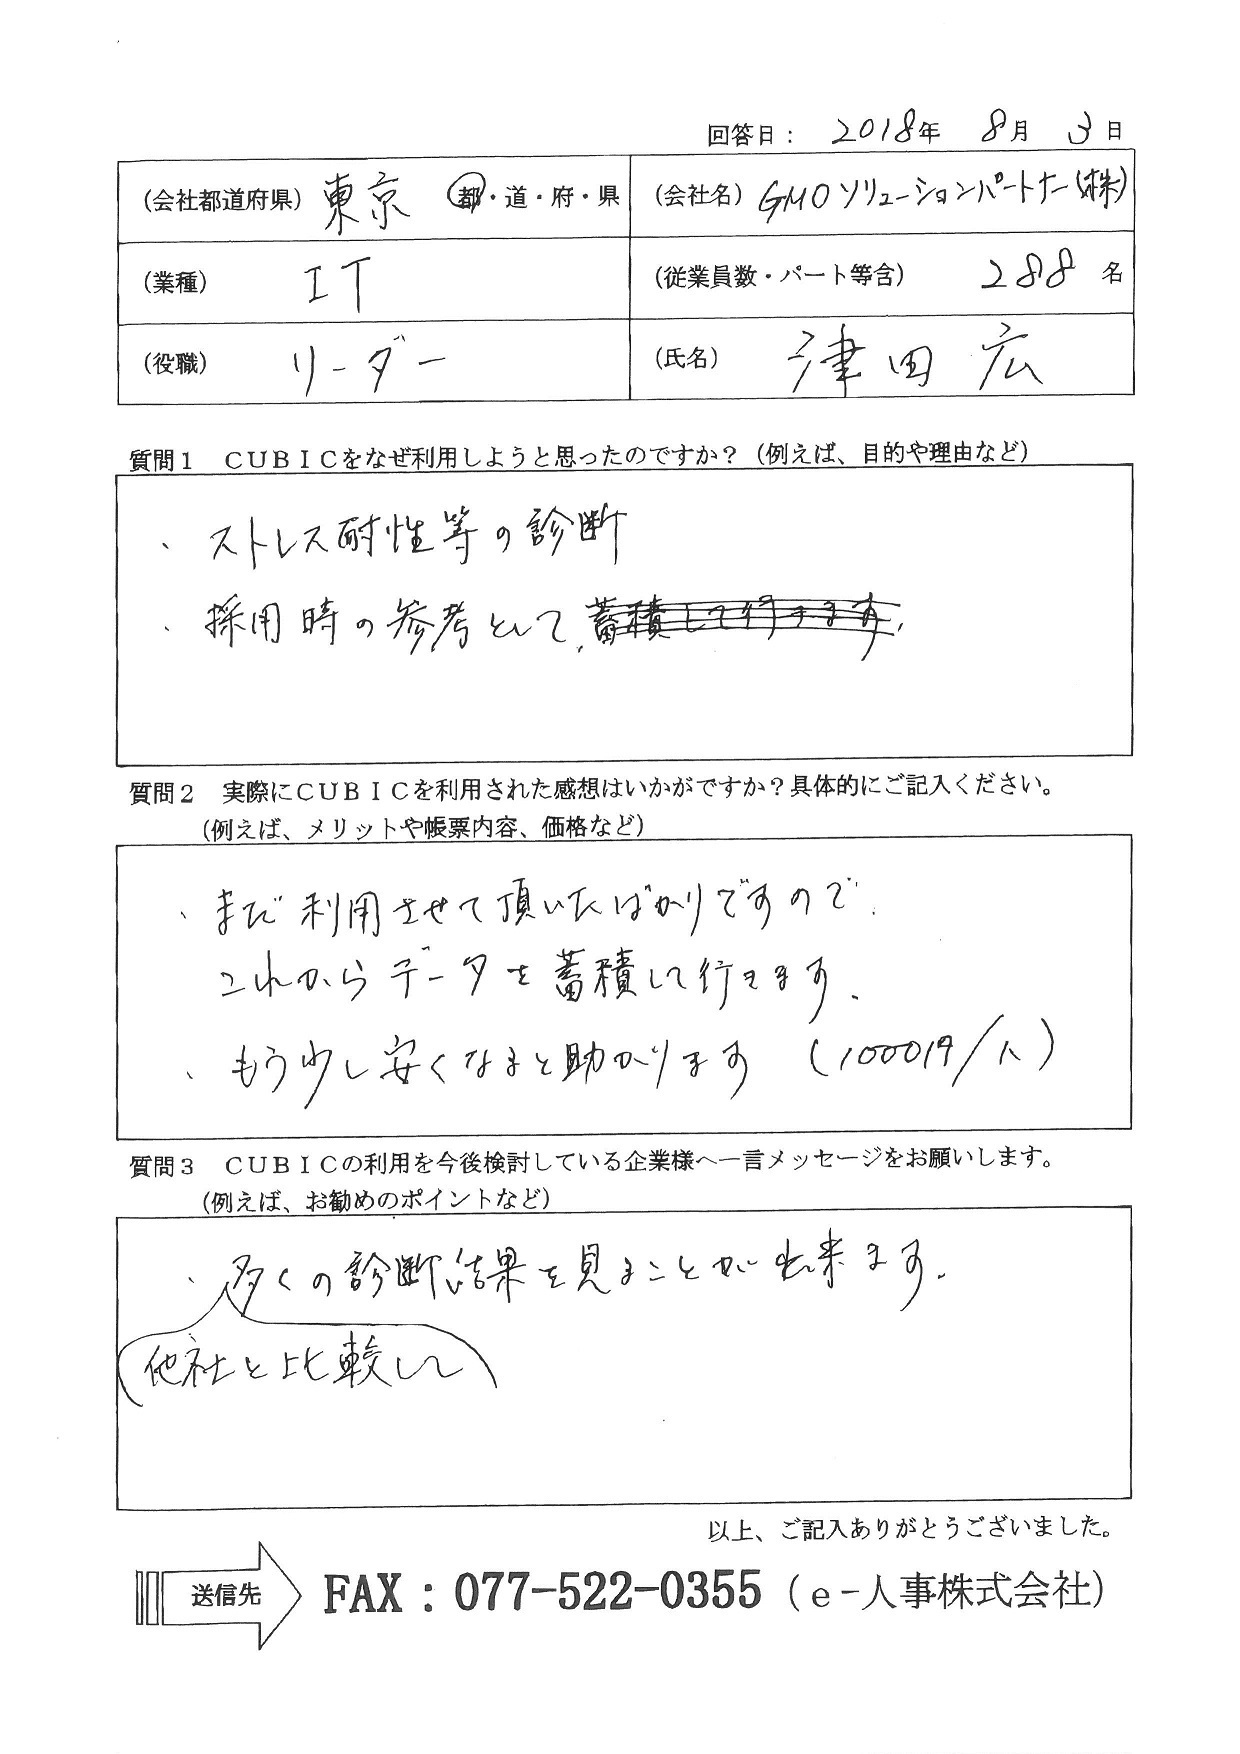 回答日： 2018年 8月 3日
（会社都道府県） 東京 都・道・府・県 （会社名） GMOソリューションパートナー（株）
（業種） IT （従業員数・パート等含） 288 名
（役職） リーダー （氏名） 津田 広
質問１ ＣＵＢＩＣをなぜ利用しようと思ったのですか？（例えば、目的や理由など）
、ストレス耐性等の診断
、採用時の参考として、蓄積して行きます。
質問２ 実際にＣＵＢＩＣを利用された感想はいかがですか？具体的にご記入ください。
（例えば、メリットや帳票内容、価格など）
、まだ利用させて頂いたばかりですので、
これからデータを蓄積して行きます。
、もう少し安くなると助かります （1000円/人）
質問３ ＣＵＢＩＣの利用を今後検討している企業様へ一言メッセージをお願いします。
（例えば、お勧めのポイントなど）
、多くの診断結果を見ることが出来ます。
他社と比較して
以上、ご記入ありがとうございました。
送信先 FAX：077-522-0355（ｅ-人事株式会社）